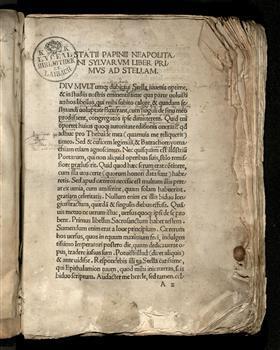 K. K.
LYCEAL
BIBLIOTHEK
ZU
LAIBACH
STATII PAPINII NEAPOLITA
NI SYLVARVM LIBER PRI
MVS AD STELLAM.
DIV MVLTumq; dubitaui Stella iuuenis optime,
& in studiis nostris eminentissime qua parte uoluisti
an hos libellos, qui mihi subito calore, & quadam fe
stinandi uoluptate fluxerunt, cum singuli de sinu meo
prodiissent, congregatos ipse dimitterem. Quid
oportet huius quoq; autoritate editionis onerari?
adhuc pro Thebaide mea (quamuis me reliquerit)
timeo. Sed & culicem legimus, & Batrachomyoma
chiam etiam agnoscimus. Nec quisquam est illustrium
Poetarum, qui non aliquid operibus suis, stilo remis
siore praeluserit. Quid quod haec serum erat
cum illa
sent. Sed apud caeteros necesse est multum illis pereat
ex uenia, cum amiserint, quam solam habuerint,
gratiam celeritatis. Nullum enim ex illis biduo lon
gius tractum, quaedam & singulis diebus effusa. Quam
timeo ne uerum istuc, uersus quoq; ipsi de se pro
bent. Primus libellus Sacrosanctum habet testem.
Sumendum enim erat a Ioue principium. Centum
hos uersus, quos in equum maximum feci, indulgen
tissimo Imperatori postero die, quam dedicauerat o
pus, tradere iussus sum. Potuisti illud (dicet aliquis)
& ante uidisse. Respondebis illi tu Stella carissime,
qui Epithalamion tuum, quod mihi iniunxeras, scis
biduo scriptum. Audacter me hercle, sed tamen
A II